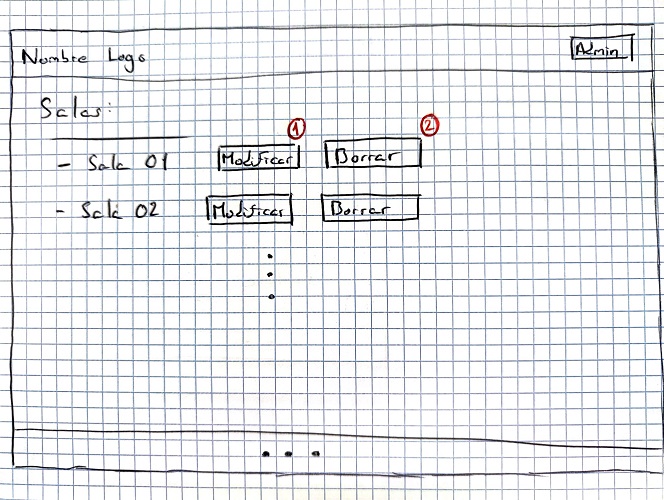 Nombre Logo
Admin
Salas:
1 2
- Sala 01 Modificar Borrar
- Sala 02 Modificar Borrar